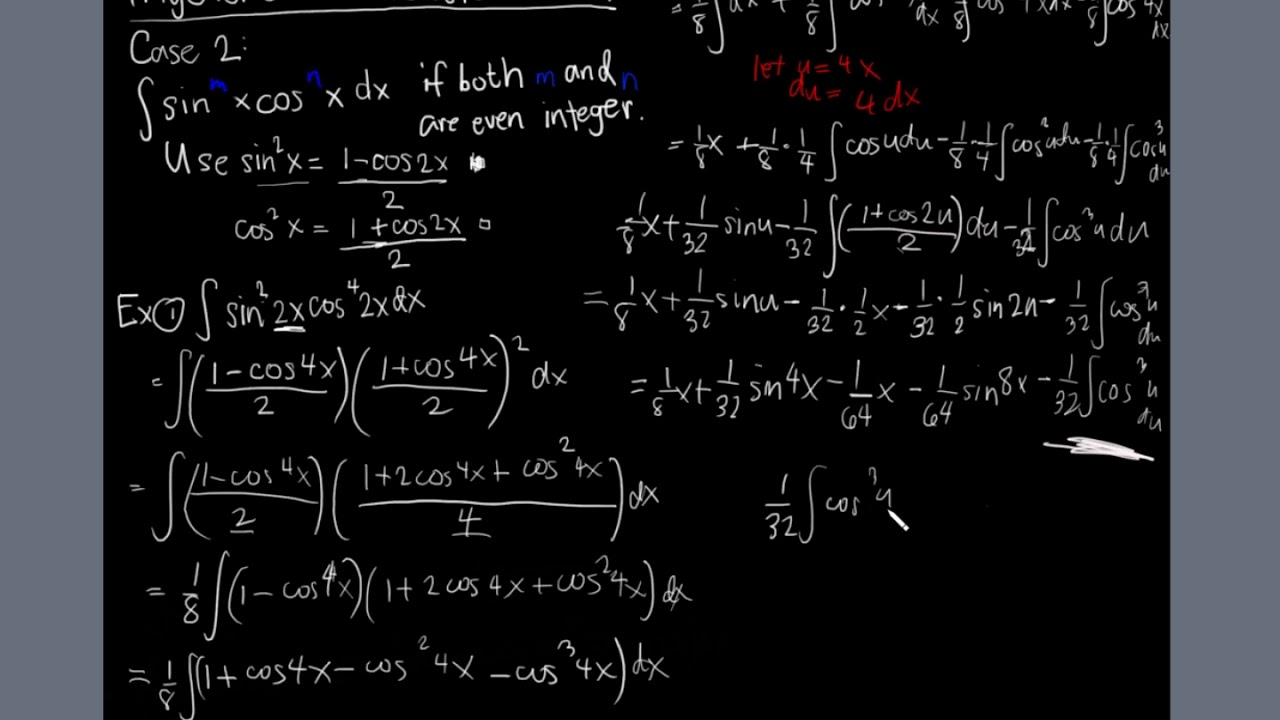 Case 2:
∫ sin^m x cos^n x dx if both m and n
are even integer.
Use sin²x = (1-cos2x)/2
cos²x = (1+cos2x)/2
Ex① ∫ sin²2x cos⁴2x dx
= ∫ ((1-cos4x)/2) ((1+cos4x)/2)² dx
= ∫ ((1-cos4x)/2) ((1+2cos4x+cos²4x)/4) dx
= 1/8 ∫ (1-cos4x)(1+2cos4x+cos²4x) dx
= 1/8 ∫ (1+cos4x-cos²4x-cos³4x) dx
let u = 4x
du = 4dx
= 1/8 x + 1/8 · 1/4 ∫ cosu du - 1/8 · 1/4 ∫ cos²u du - 1/8 · 1/4 ∫ cos³u du
1/8 x + 1/32 sinu - 1/32 ∫ ((1+cos2u)/2) du - 1/32 ∫ cos³u du
= 1/8 x + 1/32 sinu - 1/32 · 1/2 x - 1/32 · 1/2 sin2u - 1/32 ∫ cos³u du
= 1/8 x + 1/32 sin4x - 1/64 x - 1/64 sin8x - 1/32 ∫ cos³u du
1/32 ∫ cos³u